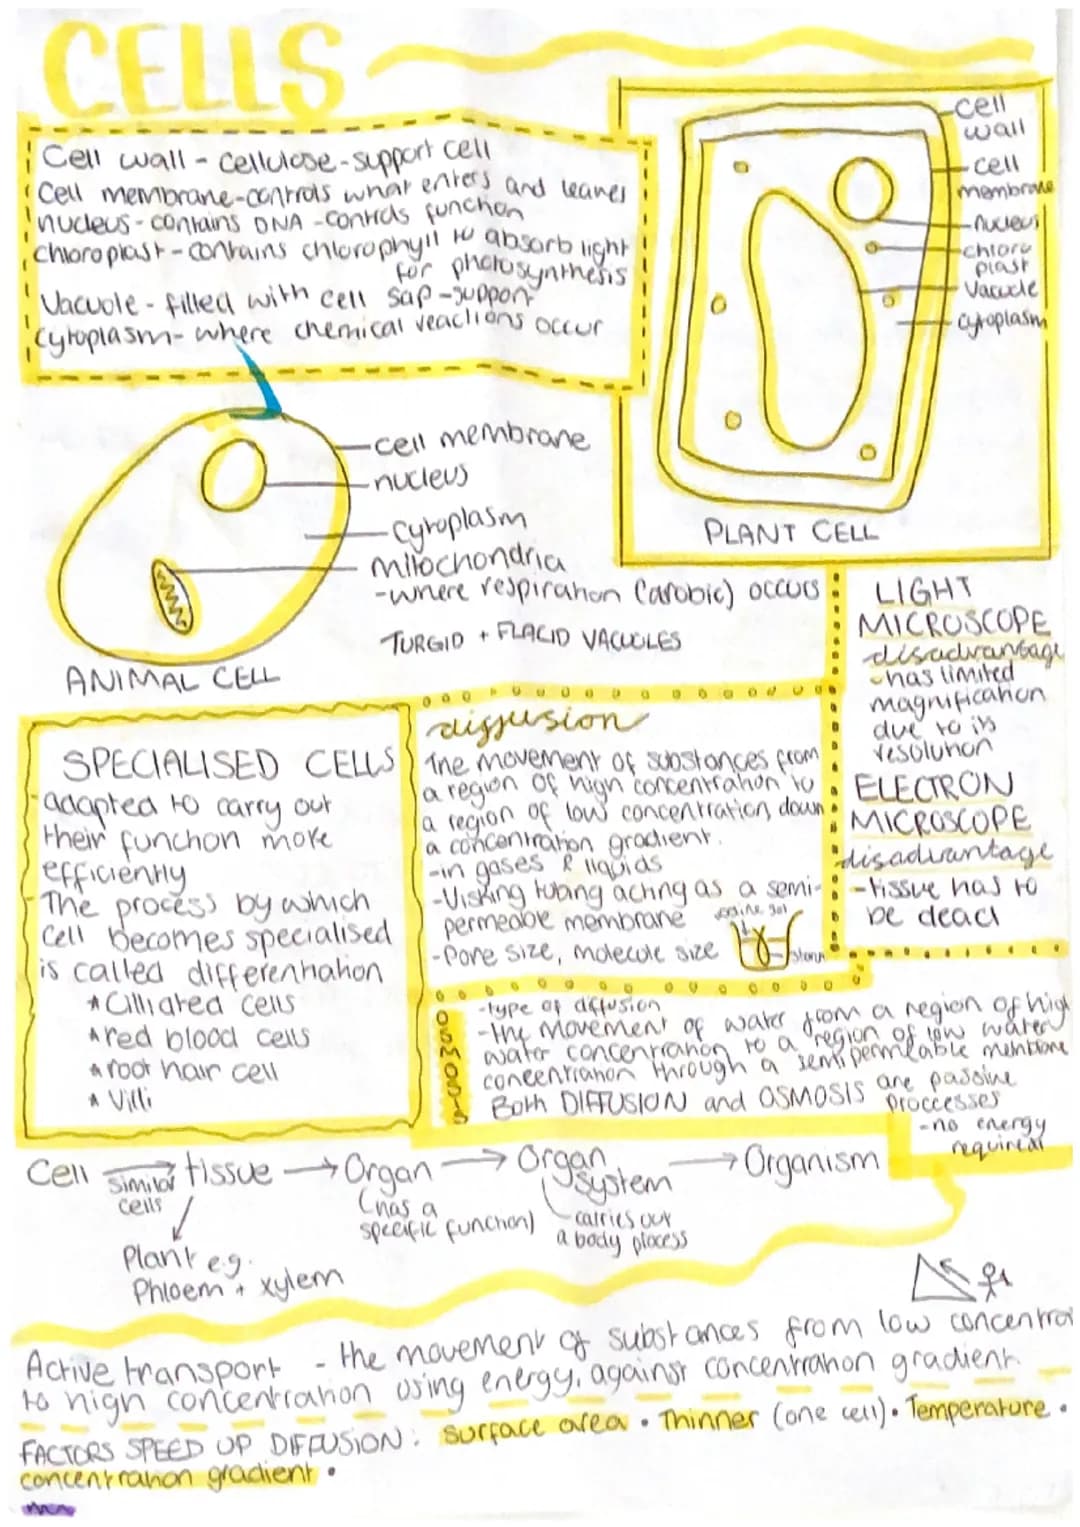 CELLS
Cell wall - cellulose - support cell
Cell membrane - controls what enters and leaves
nucleus - contains DNA - controls function
chloroplast - contains chlorophyll to absorb light
for photosynthesis
Vacuole - filled with cell sap - support
Cytoplasm - where chemical reactions occur
cell
wall
cell
membrane
nucleus
chloro
plast
Vacuole
cytoplasm
PLANT CELL
cell membrane
nucleus
cytoplasm
mitochondria
- where respiration (arobic) occurs
TURGID + FLACID VACUOLES
ANIMAL CELL
LIGHT
MICROSCOPE
disadvantage
- has limited
magnification
due to its
resolution
ELECTRON
MICROSCOPE
disadvantage
- tissue has to
be dead
SPECIALISED CELLS
- adapted to carry out
their function more
efficiently
- The process by which
cell becomes specialised
is called differentiation
* Cilliated cells
* red blood cells
* root hair cell
* Villi
diffusion
The movement of substances from
a region of high concentration to
a region of low concentration, down
a concentration gradient.
- in gases & liquids
- Visking tubing acting as a semi-
permeable membrane
- Pore size, molecule size
OSMOSIS
- type of diffusion
- the movement of water from a region of high
water concentration to a region of low water
concentration through a semi permeable membrane
Both DIFFUSION and OSMOSIS are passive
proccesses
- no energy
required
Cell → tissue → Organ → Organ system → Organism
similar
cells
(has a
specific function)
- carries out
a body process
Plant e.g.
Phloem + xylem
Active transport - the movement of substances from low concentra
to high concentration using energy, against concentration gradient.
FACTORS SPEED UP DIFFUSION: surface area • Thinner (one cell) • Temperature •
concentration gradient •